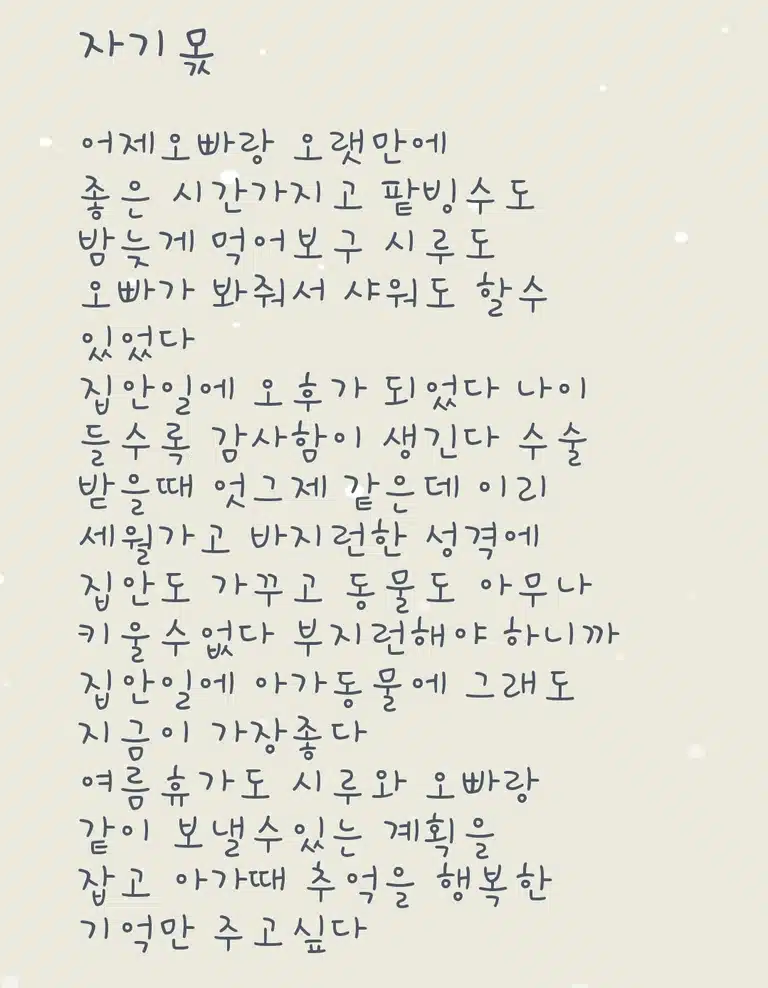 자기 몫
어제오빠랑 오랫만에
좋은 시간가지고 팥빙수도
밤늦게 먹어보구 시루도
오빠가 봐줘서 샤워도 할수
있었다
집안일에 오후가 되었다 나이
들수록 감사함이 생긴다 수술
받을때 엇그제 같은데 이리
세월가고 바지런한 성격에
집안도 가꾸고 동물도 아무나
키울수없다 부지런해야 하니까
집안일에 아가동물에 그래도
지금이 가장좋다
여름휴가도 시루와 오빠랑
같이 보낼수있는 계획을
잡고 아가때 추억을 행복한
기억만 주고싶다